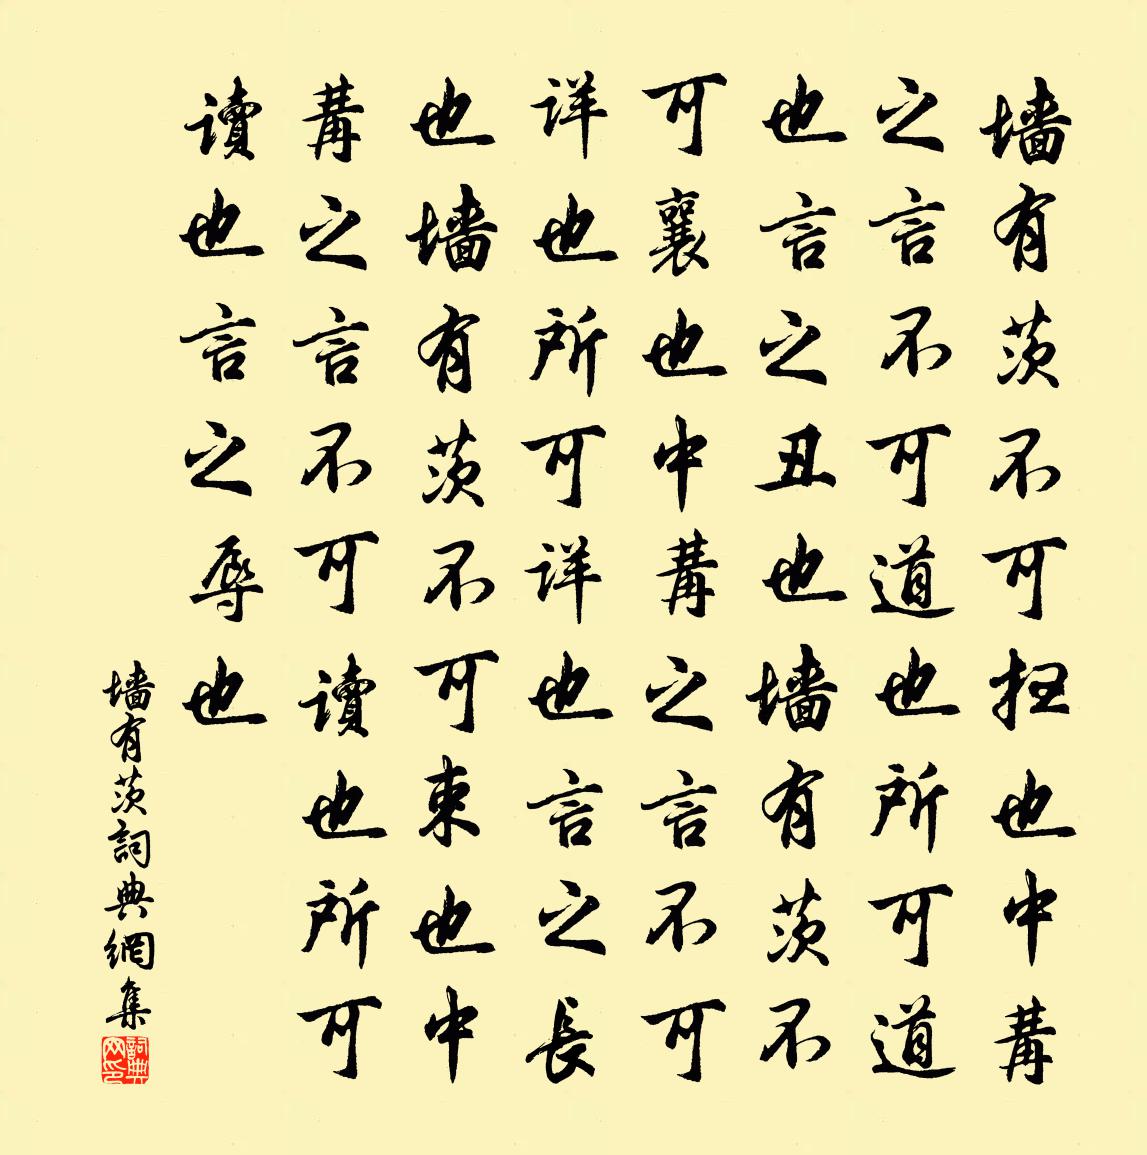 墙有茨不可扫也中冓
之言不可道也所可道
也言之丑也墙有茨不
可襄也中冓之言不可
详也所可详也言之長
也墙有茨不可束也中
冓之言不可读也所可
读也言之辱也
墙有茨詞典網集
詞典网印